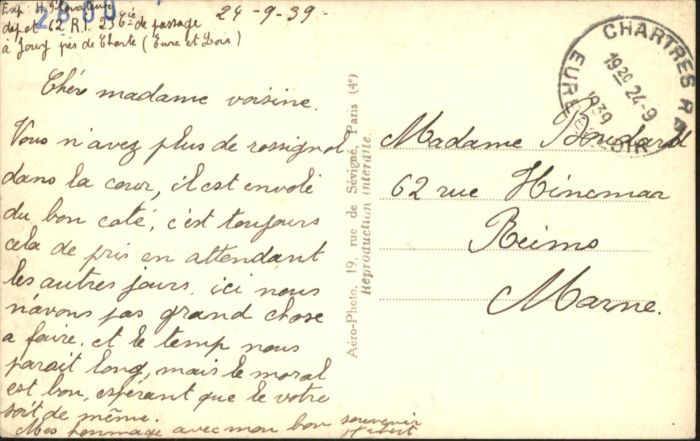 Exp: H
2800
24-9-39-
depot 62 R.I. 236 Cie de passage
à Jouy près de Charte (Eure et Loir)
Chére madame voisine.
Vous n'avez plus de rossignol
dans la cour, il est envolé
du bon coté, c'est toujours
cela de pris en attendant
les autres jours. ici nous
n'avons pas grand chose
a faire. et le temps nous
parait long, mais le moral
est bon, espérant que le votre
soit de même.
Mes hommage avec mon bon souvenir
Aéro-Photo, 19, rue de Sévigné, Paris (4e)
Reproduction interdite.
CHARTRES R.P.
1920 24-9
1939
EURE LOIR
Madame Boudard
62 rue Hincmar
Reims
Marne.